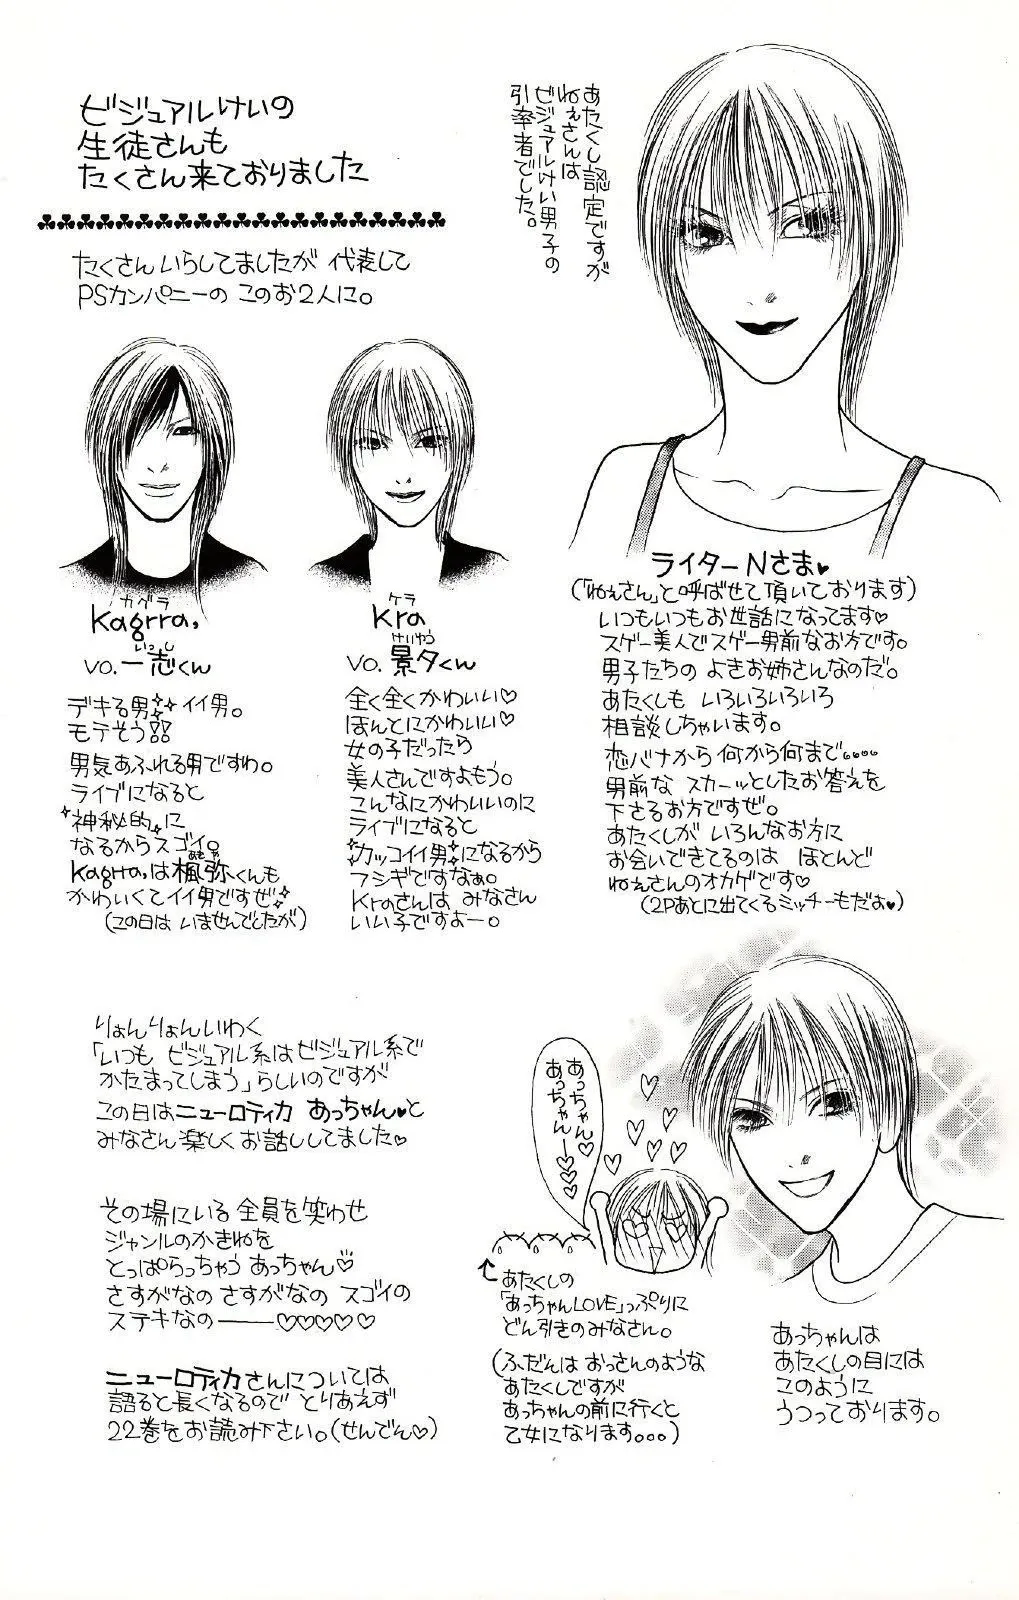 ビジュアルけいの
生徒さんも
たくさん来ておりました
たくさんいらしてましたが 代表して
PSカンパニーの このお2人に。
あたくし認定ですが
ねぇさんは
ビジュアルけい男子の
引率者でした。
カゲラ
Kagrra,
いっし
vo. 一志くん
デキる男 イイ男。
モテそう!!
男気あふれる男ですわ。
ライブになると
"神秘的"に
なるからスゴイ。
あきや
Kagrra,は楓弥くんも
かわいくてイイ男ですぜ
(この日は いませんでしたが)
ケラ
Kra
けいゆう
vo. 景夕くん
全く全くかわいい♡
ほんとにかわいい♡
女の子だったら
美人さんですよもう。
こんなにかわいいのに
ライブになると
カッコイイ男になるから
フシギですなぁ。
Kraさんは みなさん
いい子ですよー。
ライターNさま♥
(「ねぇさん」と呼ばせて頂いております)
いつもいつもお世話になってます♡
スゲー美人でスゲー男前なお方です。
男子たちの よきお姉さんなのだ。
あたくしも いろいろいろいろ
相談しちゃいます。
恋バナから 何から何まで。。。。
男前な スカーッとしたお答えを
下さるお方ですぜ。
あたくしが いろんなお方に
お会いできてるのは ほとんど
ねぇさんのオカゲです♡
(2Pあとに出てくるミッチーもだよ♥)
りょんりょんいわく
「いつも ビジュアル系はビジュアル系で
かたまってしまう」らしいのですが
この日はニューロティカ あっちゃん♥と
みなさん楽しくお話ししてました♡
その場にいる 全員を笑わせ
ジャンルのかきねを
とっぱらっちゃう あっちゃん♡
さすがなの さすがなの スゴイの
ステキなの――♡♡♡♡♡
ニューロティカさんについては
語ると長くなるので とりあえず
22巻をお読み下さい。(せんでん♡)
あっちゃん♡
あっちゃんー♡♡♡
あたくしの
「あっちゃんLOVE」っぷりに
どん引きのみなさん。
(ふだんは おっさんのような
あたくしですが
あっちゃんの前に行くと
乙女になります。。。)
あっちゃんは
あたくしの目には
このように
うつっております。